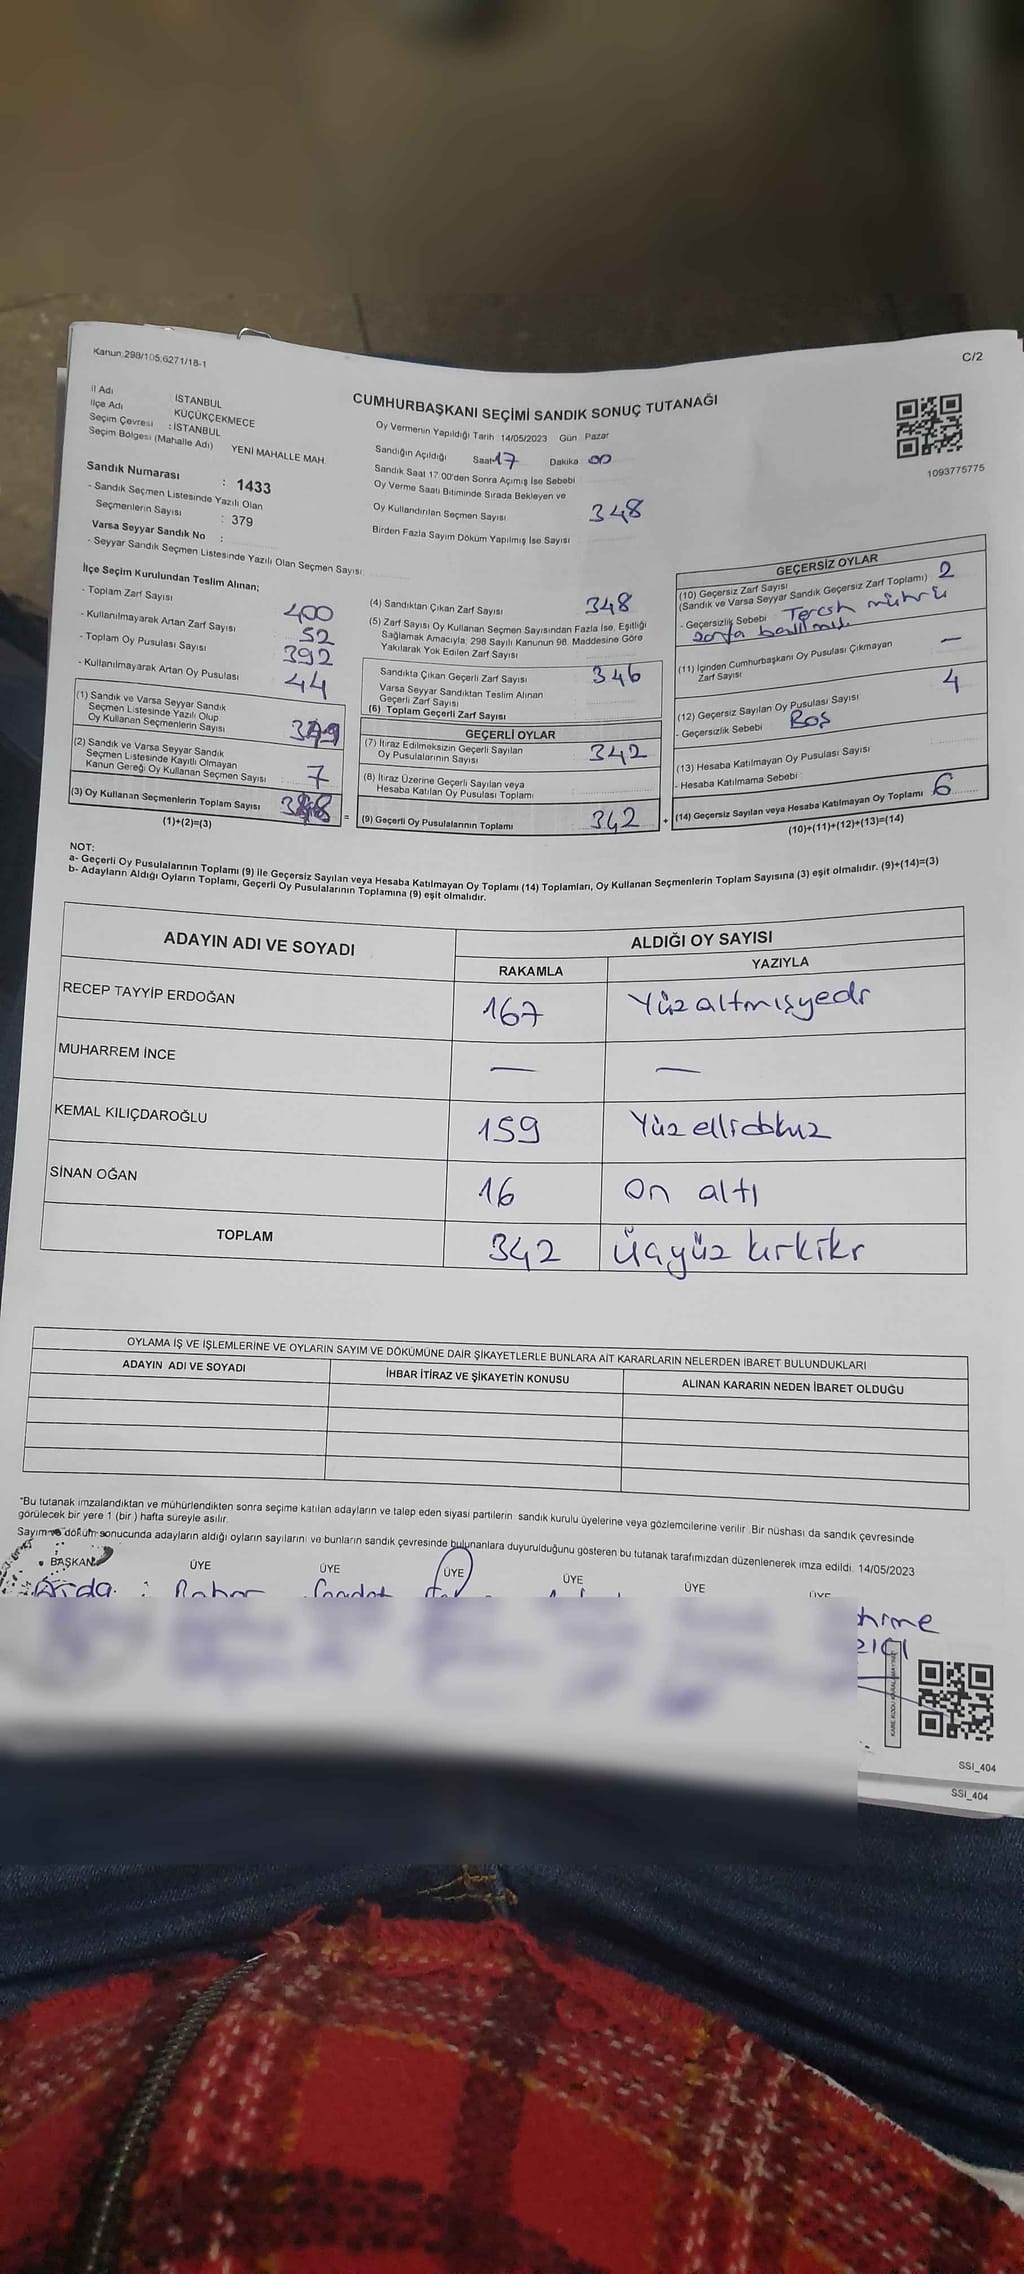 Kanun:298/105,6271/18-1
C/2
CUMHURBAŞKANI SEÇİMİ SANDIK SONUÇ TUTANAĞI
İl Adı İSTANBUL
İlçe Adı KÜÇÜKÇEKMECE
Seçim Çevresi : İSTANBUL
Seçim Bölgesi (Mahalle Adı) YENİ MAHALLE MAH.
Sandık Numarası : 1433
- Sandık Seçmen Listesinde Yazılı Olan
Seçmenlerin Sayısı : 379
Varsa Seyyar Sandık No :
- Seyyar Sandık Seçmen Listesinde Yazılı Olan Seçmen Sayısı:
Oy Vermenin Yapıldığı Tarih 14/05/2023 Gün Pazar
Sandığın Açıldığı Saat 17 Dakika 00
Sandık Saat 17:00'den Sonra Açımış İse Sebebi
Oy Verme Saati Bitiminde Sırada Bekleyen ve
Oy Kullandırılan Seçmen Sayısı 348
Birden Fazla Sayım Döküm Yapılmış İse Sayısı
1093775775
İlçe Seçim Kurulundan Teslim Alınan;
- Toplam Zarf Sayısı 400
- Kullanılmayarak Artan Zarf Sayısı 52
- Toplam Oy Pusulası Sayısı 392
- Kullanılmayarak Artan Oy Pusulası 44
(1) Sandık ve Varsa Seyyar Sandık
Seçmen Listesinde Yazılı Olup
Oy Kullanan Seçmenlerin Sayısı
(2) Sandık ve Varsa Seyyar Sandık
Seçmen Listesinde Kayıtlı Olmayan
Kanun Gereği Oy Kullanan Seçmen Sayısı 7
(3) Oy Kullanan Seçmenlerin Toplam Sayısı =
(1)+(2)=(3)
(4) Sandıktan Çıkan Zarf Sayısı 348
(5) Zarf Sayısı Oy Kullanan Seçmen Sayısından Fazla İse, Eşitliği
Sağlamak Amacıyla, 298 Sayılı Kanunun 98. Maddesine Göre
Yakılarak Yok Edilen Zarf Sayısı
Sandıkta Çıkan Geçerli Zarf Sayısı 346
Varsa Seyyar Sandıktan Teslim Alınan
Geçerli Zarf Sayısı
(6) Toplam Geçerli Zarf Sayısı
GEÇERLİ OYLAR
(7) İtiraz Edilmeksizin Geçerli Sayılan
Oy Pusulalarının Sayısı 342
(8) İtiraz Üzerine Geçerli Sayılan veya
Hesaba Katılan Oy Pusulası Toplamı
(9) Geçerli Oy Pusulalarının Toplamı 342 +
GEÇERSİZ OYLAR
(10) Geçersiz Zarf Sayısı
(Sandık ve Varsa Seyyar Sandık Geçersiz Zarf Toplamı) 2
- Geçersizlik Sebebi Tercih mührü
zarfa basılmış.
(11) İçinden Cumhurbaşkanı Oy Pusulası Çıkmayan
Zarf Sayısı —
(12) Geçersiz Sayılan Oy Pusulası Sayısı 4
- Geçersizlik Sebebi Boş
(13) Hesaba Katılmayan Oy Pusulası Sayısı
- Hesaba Katılmama Sebebi
(14) Geçersiz Sayılan veya Hesaba Katılmayan Oy Toplamı 6
(10)+(11)+(12)+(13)=(14)
NOT:
a- Geçerli Oy Pusulalarının Toplamı (9) ile Geçersiz Sayılan veya Hesaba Katılmayan Oy Toplamı (14) Toplamları, Oy Kullanan Seçmenlerin Toplam Sayısına (3) eşit olmalıdır. (9)+(14)=(3)
b- Adayların Aldığı Oyların Toplamı, Geçerli Oy Pusulalarının Toplamına (9) eşit olmalıdır.
ADAYIN ADI VE SOYADI ALDIĞI OY SAYISI
RAKAMLA YAZIYLA
RECEP TAYYİP ERDOĞAN 167 Yüzaltmışyedi
MUHARREM İNCE — —
KEMAL KILIÇDAROĞLU 159 Yüzellidokuz
SİNAN OĞAN 16 On altı
TOPLAM 342 Üçyüz kırkiki
OYLAMA İŞ VE İŞLEMLERİNE VE OYLARIN SAYIM VE DÖKÜMÜNE DAİR ŞİKAYETLERLE BUNLARA AİT KARARLARIN NELERDEN İBARET BULUNDUKLARI
ADAYIN ADI VE SOYADI İHBAR İTİRAZ VE ŞİKAYETİN KONUSU ALINAN KARARIN NEDEN İBARET OLDUĞU
*Bu tutanak imzalandıktan ve mühürlendikten sonra seçime katılan adayların ve talep eden siyasi partilerin sandık kurulu üyelerine veya gözlemcilerine verilir. Bir nüshası da sandık çevresinde
görülecek bir yere 1 (bir ) hafta süreyle asılır.
Sayım ve döküm sonucunda adayların aldığı oyların sayılarını ve bunların sandık çevresinde bulunanlara duyurulduğunu gösteren bu tutanak tarafımızdan düzenlenerek imza edildi. 14/05/2023
BAŞKAN ÜYE ÜYE ÜYE ÜYE ÜYE ÜYE
Arda
KARE KODU KARALAMAYINIZ
SSI_404
SSI_404